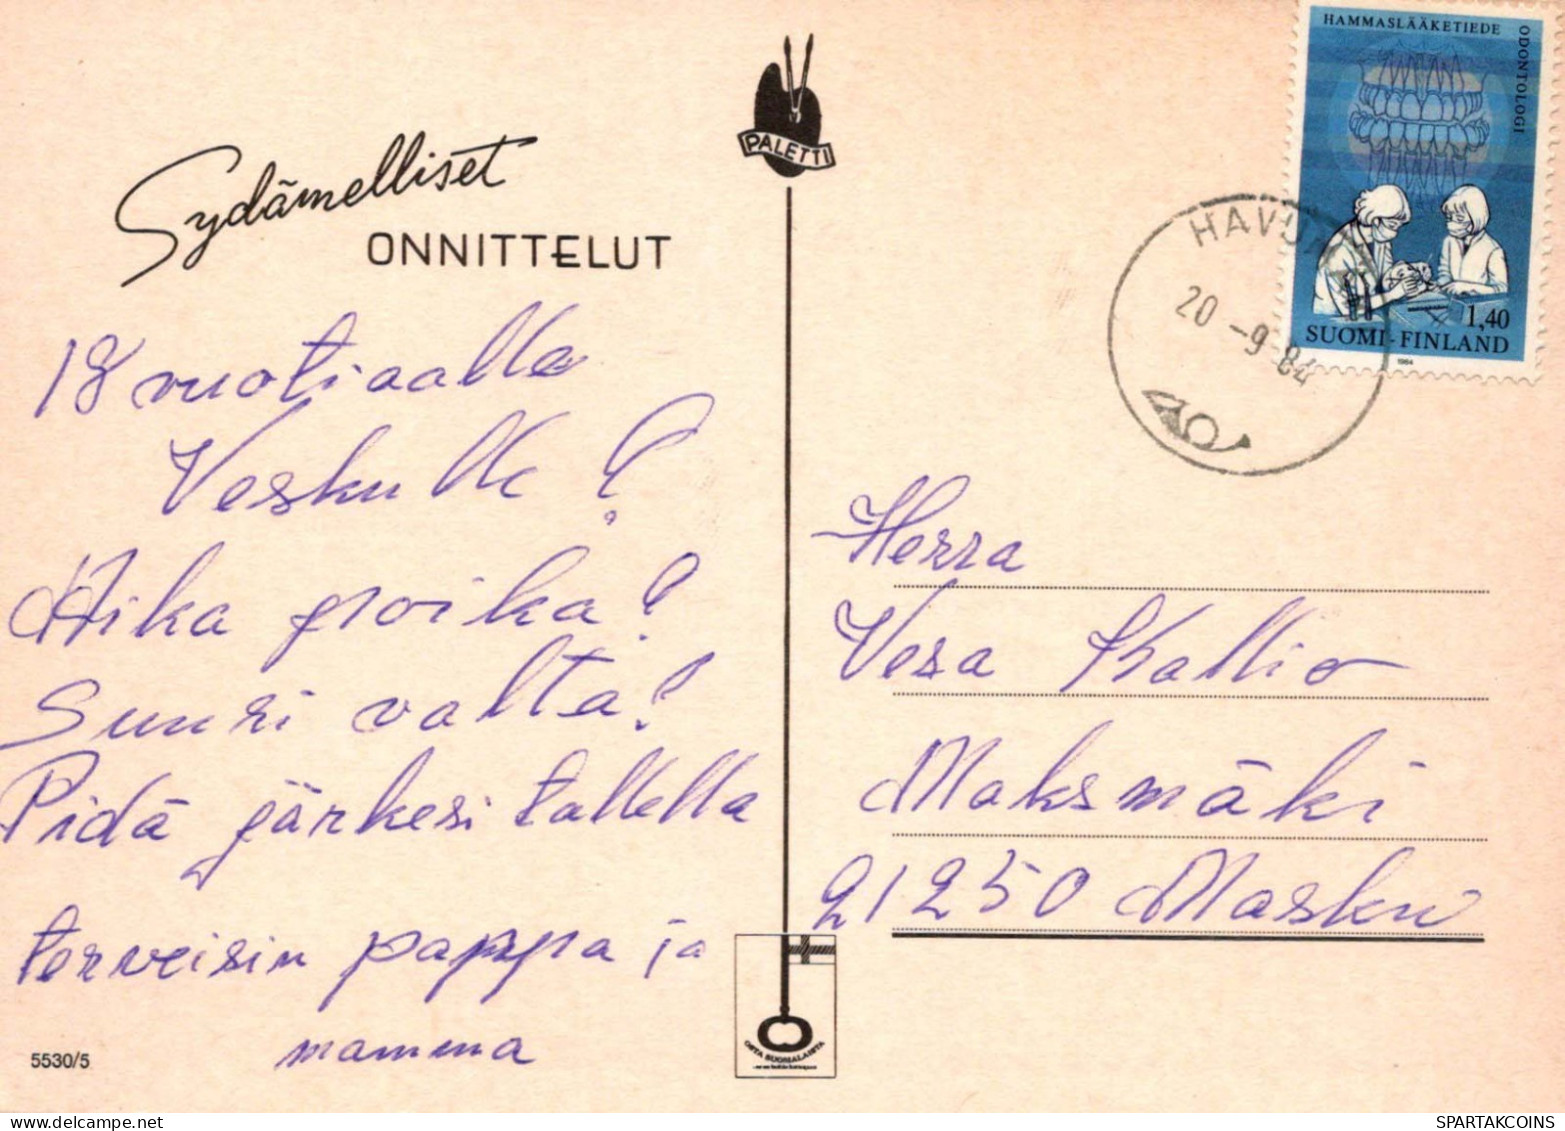 Sydämelliset
ONNITTELUT
18 vuotiaalle
Veskulle!
Aika poika!
Suuri valta!
Pidä järkesi tallella
terveisin pappa ja
mamma
5530/5
PALETTI
HAMMASLÄÄKETIEDE
ODONTOLOGI
1,40
SUOMI-FINLAND
1984
20 -9-84
Herra
Vesa Kallio
Maksmäki
21250 Masku
OSTA SUOMALAISTA
delcampe.net
SPARTAKCOINS